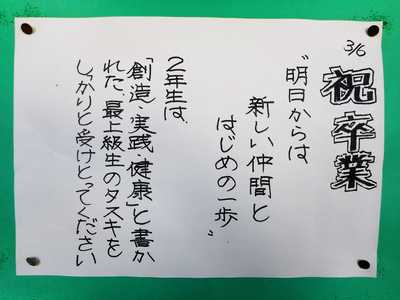 3/6
祝卒業
"明日からは
新しい仲間と
はじめの一歩"
2年生は、
「創造・実践・健康」と書か
れた、最上級生のタスキを
しっかりと受けとってください